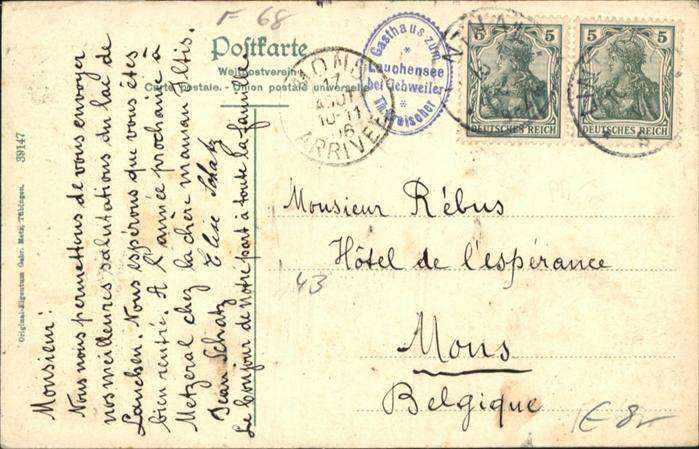 F 68
Postkarte
Weltpostverein
Carte postale. - Union postale universelle
MONS
17
AOUT
10-11
06
ARRIVEE
Gasthaus zum
Lauchensee
bei Gebweiler
Th. Dreischer
5 5
DEUTSCHES REICH
5 5
DEUTSCHES REICH
Monsieur Rébus
Hôtel de l'espérance
43
Mons
Belgique
E 8-
Monsieur:
Nous nous permettons de vous envoyer
nos meilleures salutations du lac de
Lauchen. Nous espérons que vous êtes
bien rentré. A l'année prochaine à
Metzeral chez la chère maman Iltis.
Jean Schatz Elise Schatz
Le bonjour de Notre part à toute la famille
Original-Eigentum Gebr. Metz, Tübingen. 39147